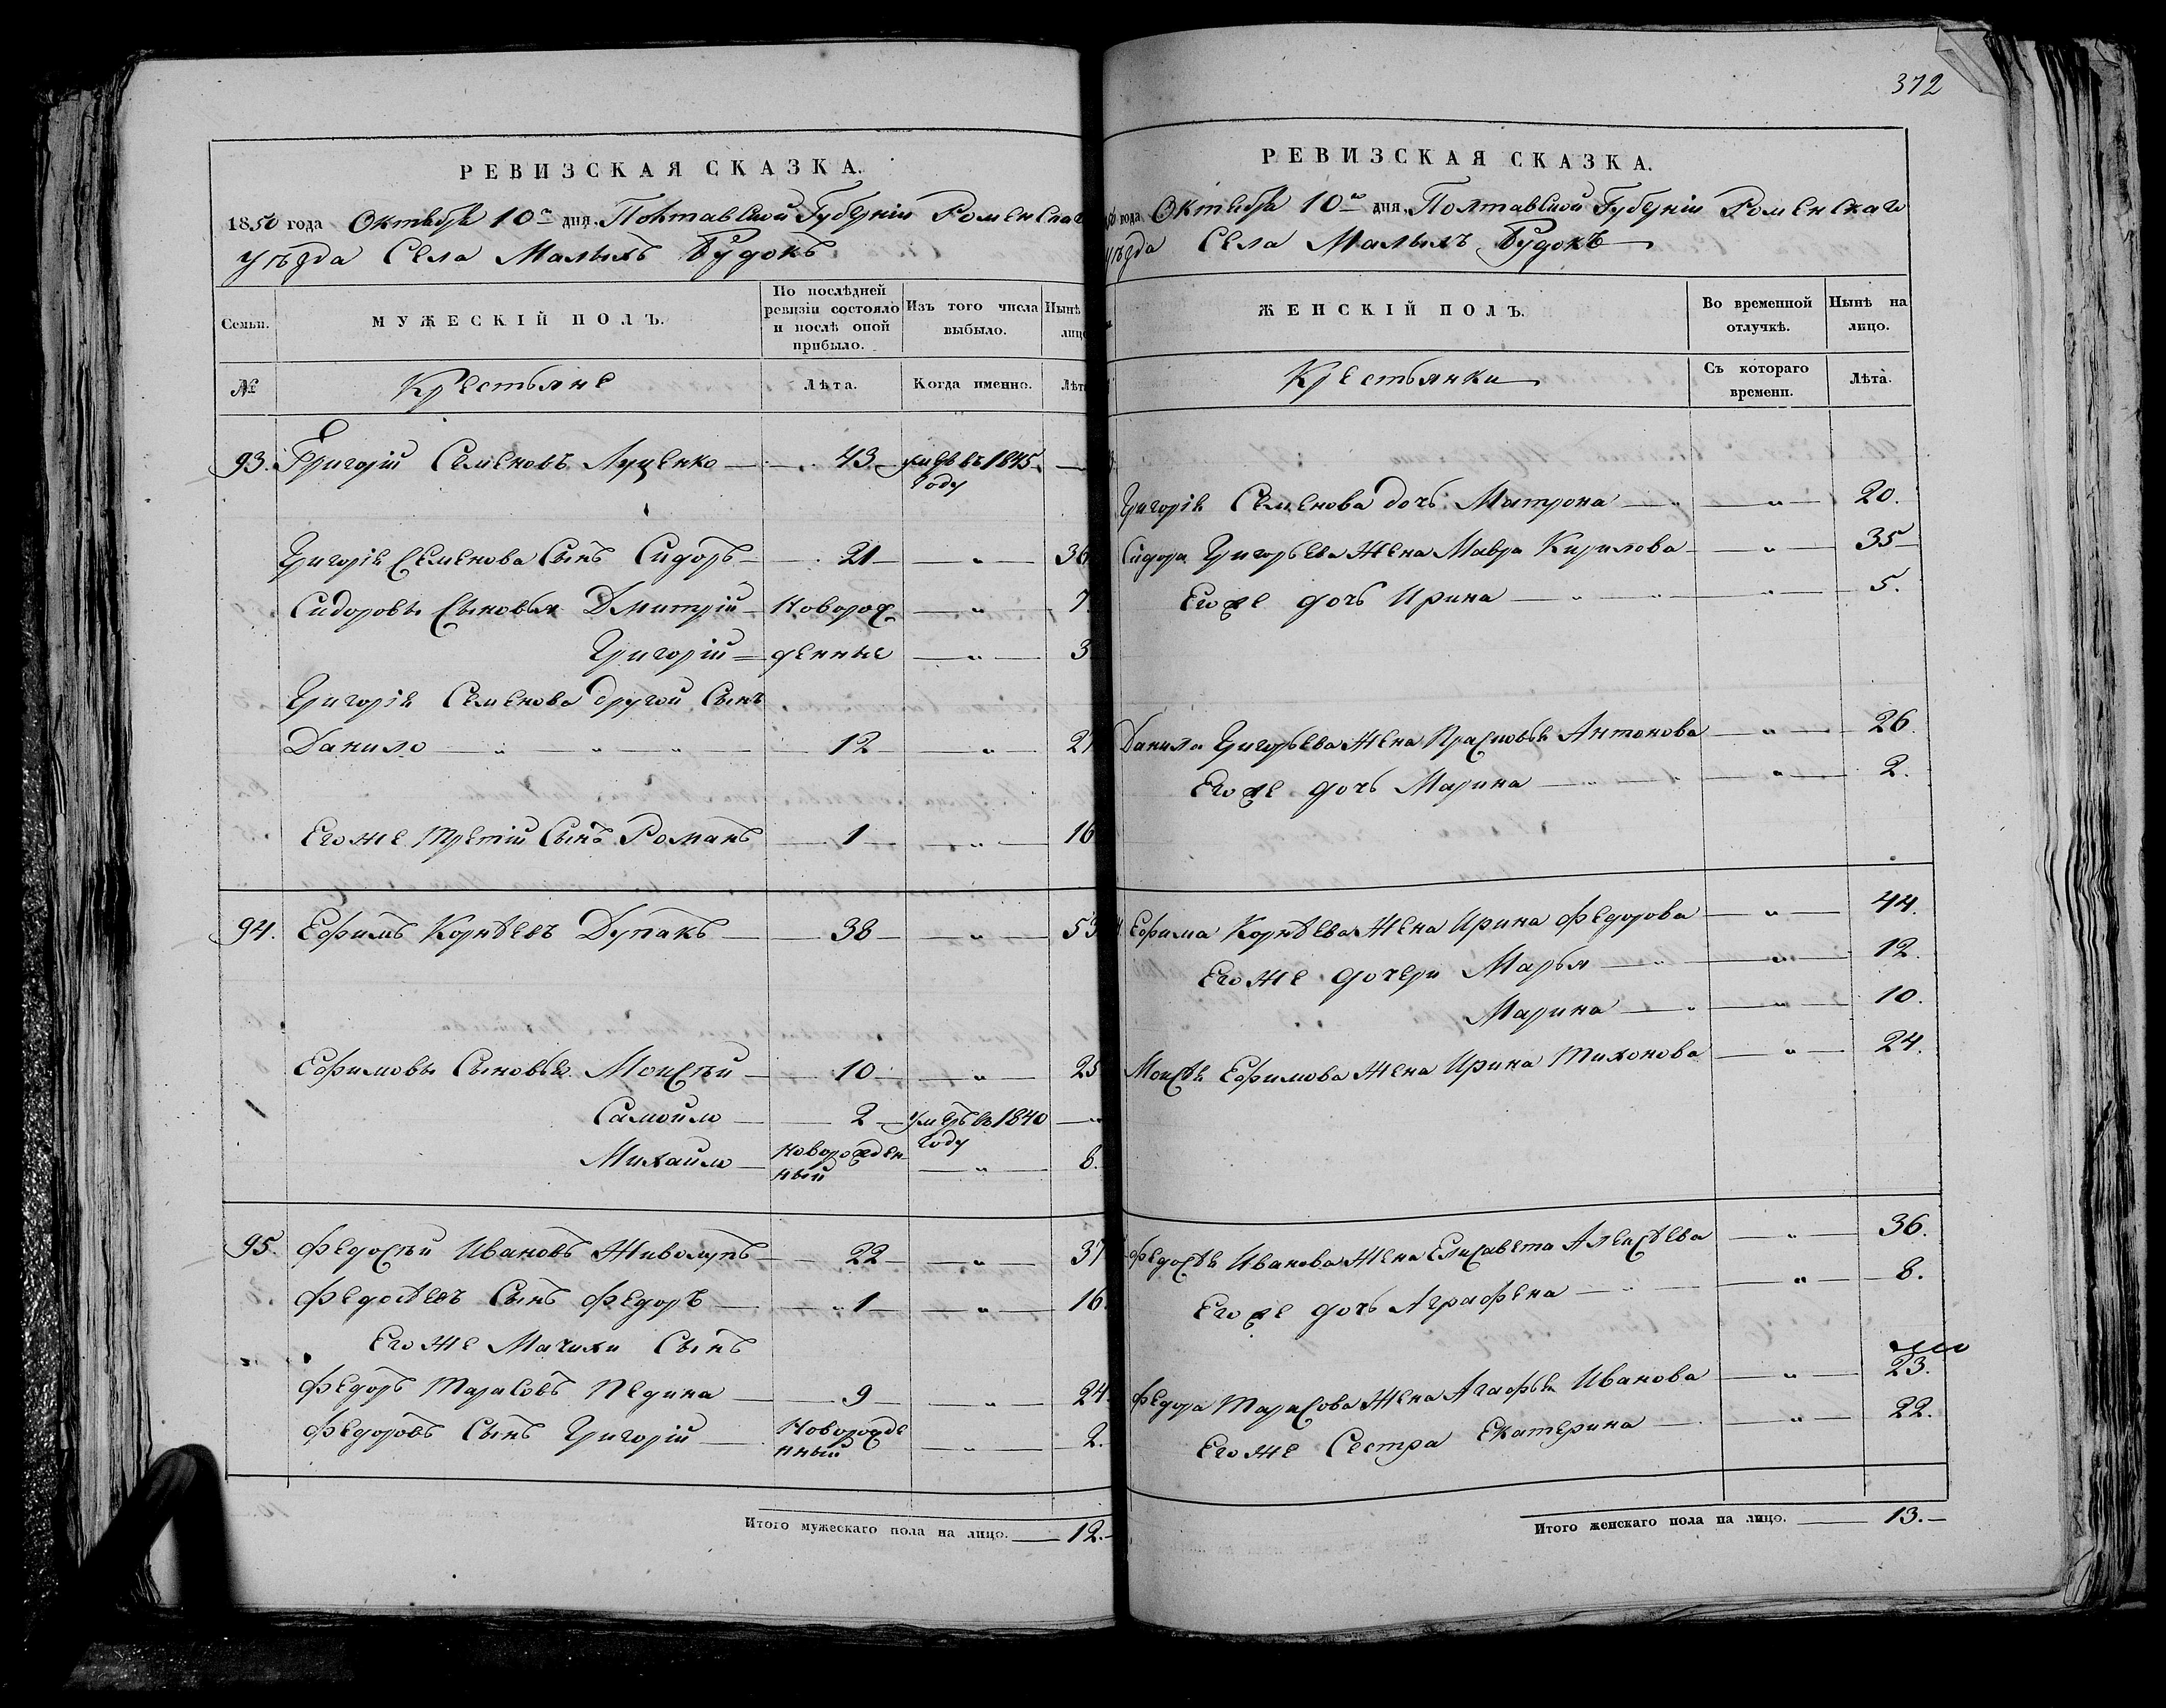 РЕВИЗСКАЯ СКАЗКА.
1850 года Октября 10го дня. Полтавской Губерніи Роменскаго
уѣзда Села Малыхъ Будокъ
Семьи. МУЖЕСКІЙ ПОЛЪ. По послѣдней ревизіи состояло и послѣ оной прибыло. Изъ того числа выбыло. Нынѣ лицо
№ Крестьяне Лѣта. Когда именно. Лѣта
93. Григорій Семеновъ Луценко 43 умеръ въ 1845 году
Григорія Семенова Сынъ Сидоръ 21 „ 36
Сидоровы Сыновья Дмитрій Новорож „ 7
Григорій денные „ 3
Григорія Семенова другой Сынъ
Данило „ „ „ 12 „ 27
Его же третій Сынъ Романъ 1 „ 16
94. Ефимъ Корнѣевъ Дупакъ 38 „ 53
Ефимовы Сыновья Моисѣй 10 „ 25
Самойло 2 умеръ въ 1840 году „
Михайло новорожденный „ 8.
95. Федосѣй Ивановъ Живолупъ 22 „ 37
Федосѣевъ Сынъ Федоръ 1 „ 16
Его же Мачихи Сынъ
Федоръ Тарасовъ Педина 9 „ 24.
Федоровъ Сынъ Григорій Новорожденный „ 2.
Итого мужескаго пола на лицо. 12.
372
РЕВИЗСКАЯ СКАЗКА.
50 года Октября 10го дня. Полтавской Губерніи Роменскаго
уѣзда Села Малыхъ Будокъ
ЖЕНСКІЙ ПОЛЪ. Во временной отлучкѣ. Нынѣ на лицо.
Крестьянки Съ котораго времени. Лѣта.
Григорія Семенова дочь Матрона „ „ 20.
Сидора Григорьева Жена Мавра Кирилова „ 35
Его же дочь Ирина „ „ „ 5.
Данила Григорьева Жена Прасковья Антонова „ 26.
Его же дочь Марина „ „ 2.
Ефима Корнѣева Жена Ирина Федорова „ 44.
Его же дочери Марья „ „ 12.
Марина „ „ 10.
Моисѣя Ефимова Жена Ирина Тихонова „ 24.
Федосѣя Иванова Жена Елисавета Алексѣева „ 36.
Его же дочь Аграфена „ „ 8.
Федора Тарасова Жена Агафья Иванова „ 23.
Его же Сестра Екатерина „ 22.
Итого женскаго пола на лицо. 13.